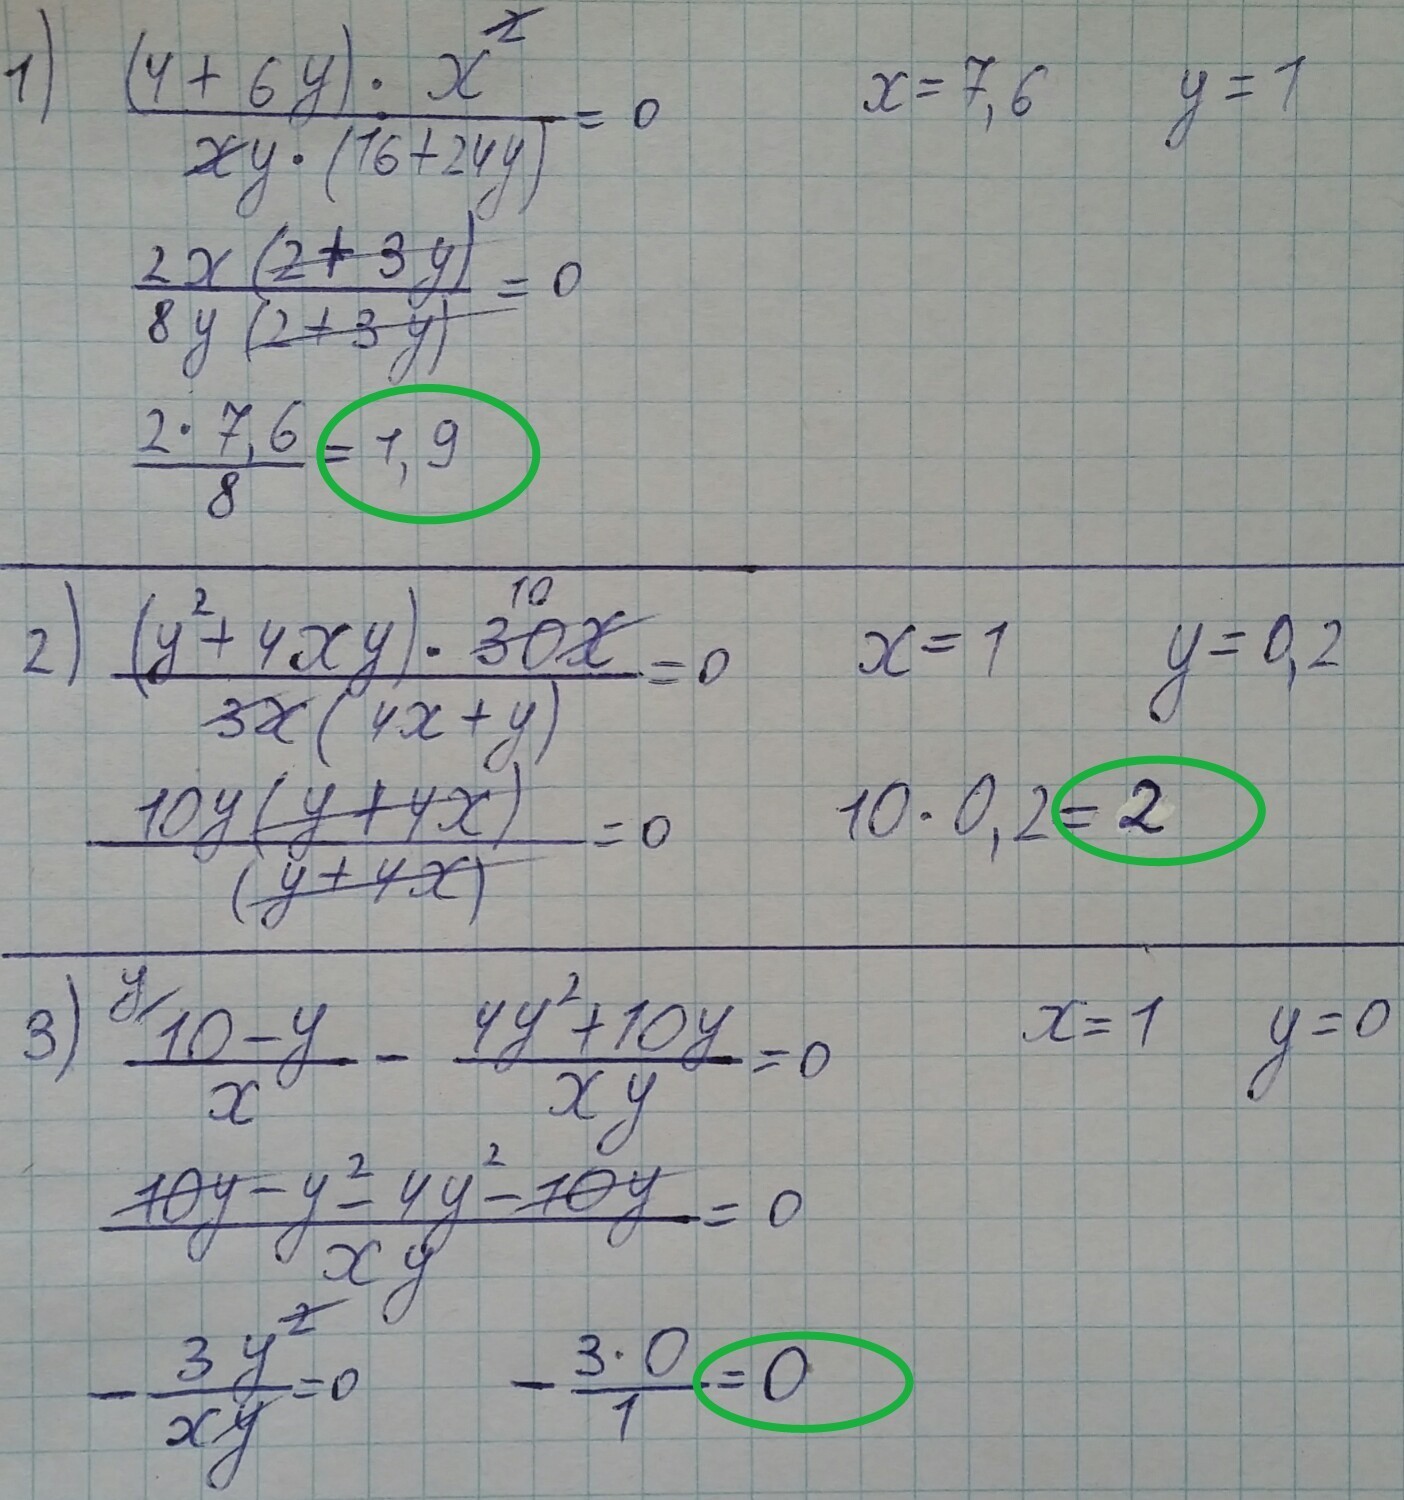 1) ((4 + 6y) · x²)/(xy · (16 + 24y)) = 0 x = 7,6 y = 1
(2x (2 + 3y))/(8y (2 + 3y)) = 0
(2 · 7,6)/8 = 1,9
2) ((y² + 4xy) · 30x)/(3x (4x + y)) = 0 x = 1 y = 0,2
10
(10y (y + 4x))/((y + 4x)) = 0 10 · 0,2 = 2
3) y/ (10 - y)/x - (4y² + 10y)/(xy) = 0 x = 1 y = 0
(10y - y² - 4y² - 10y)/(xy) = 0
- (3y²)/(xy) = 0 - (3 · 0)/1 = 0